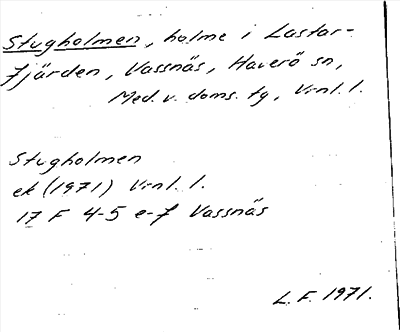 Stugholmen, holme i Lastar-
fjärden, Vassnäs, Haverö sn,
Med. v. doms. tg, Vnl. l.
Stugholmen
ek (1971) Vnl. l.
17 F 4-5 e-f Vassnäs
L. F. 1971.